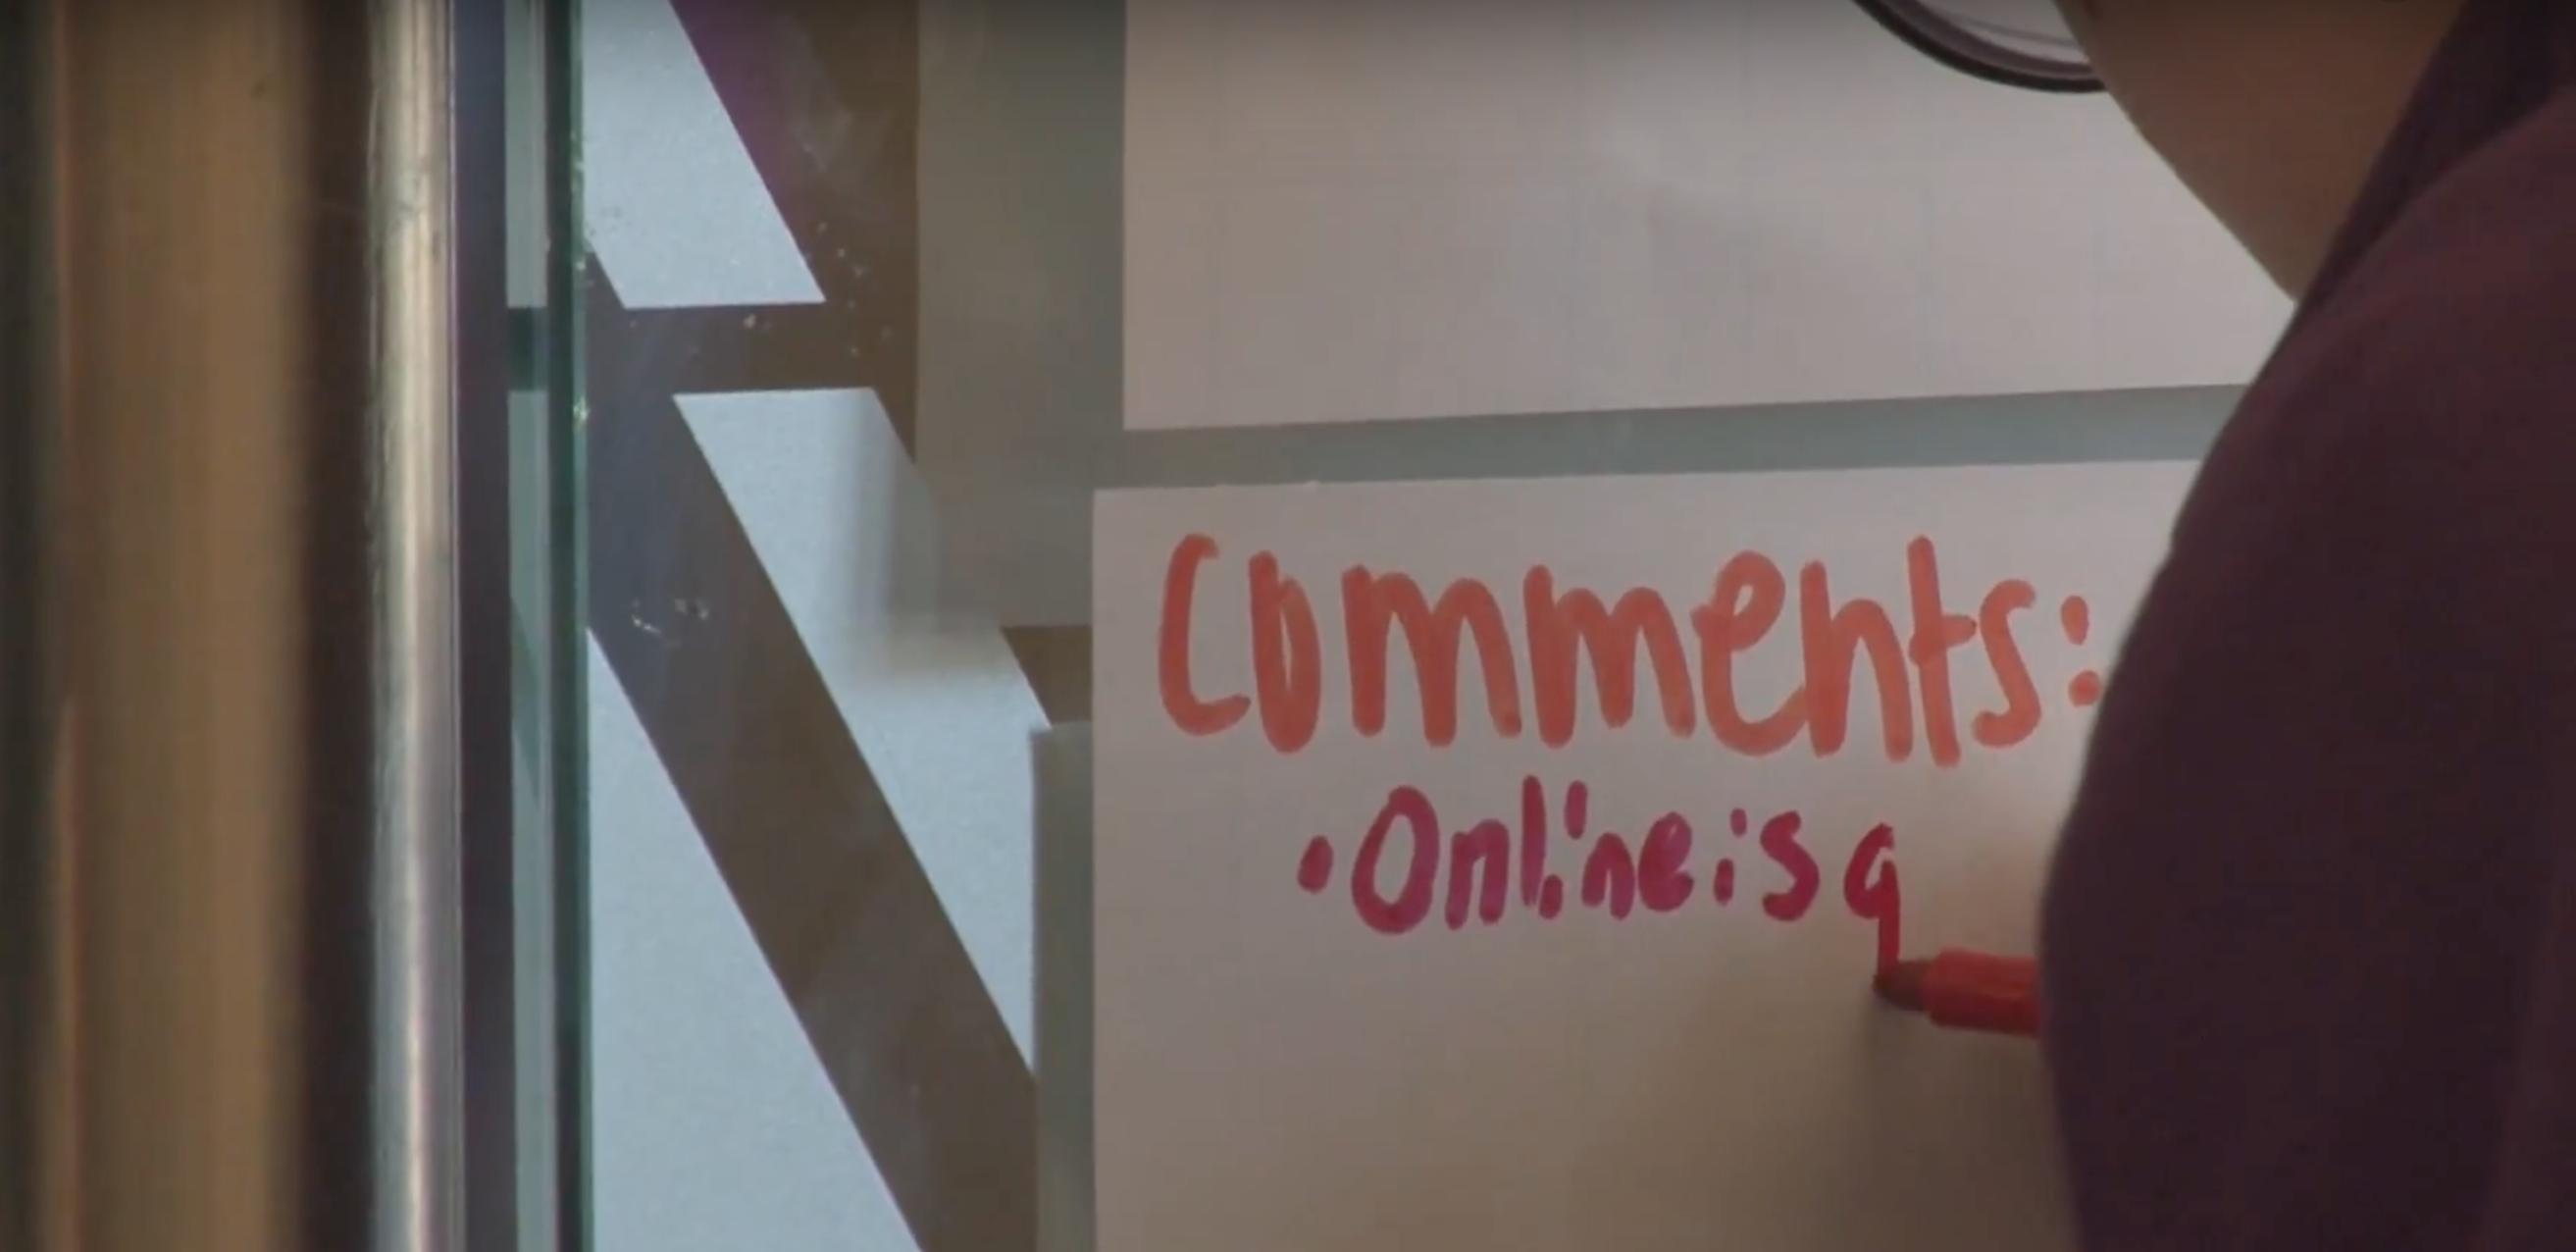 Comments:
• Online is g